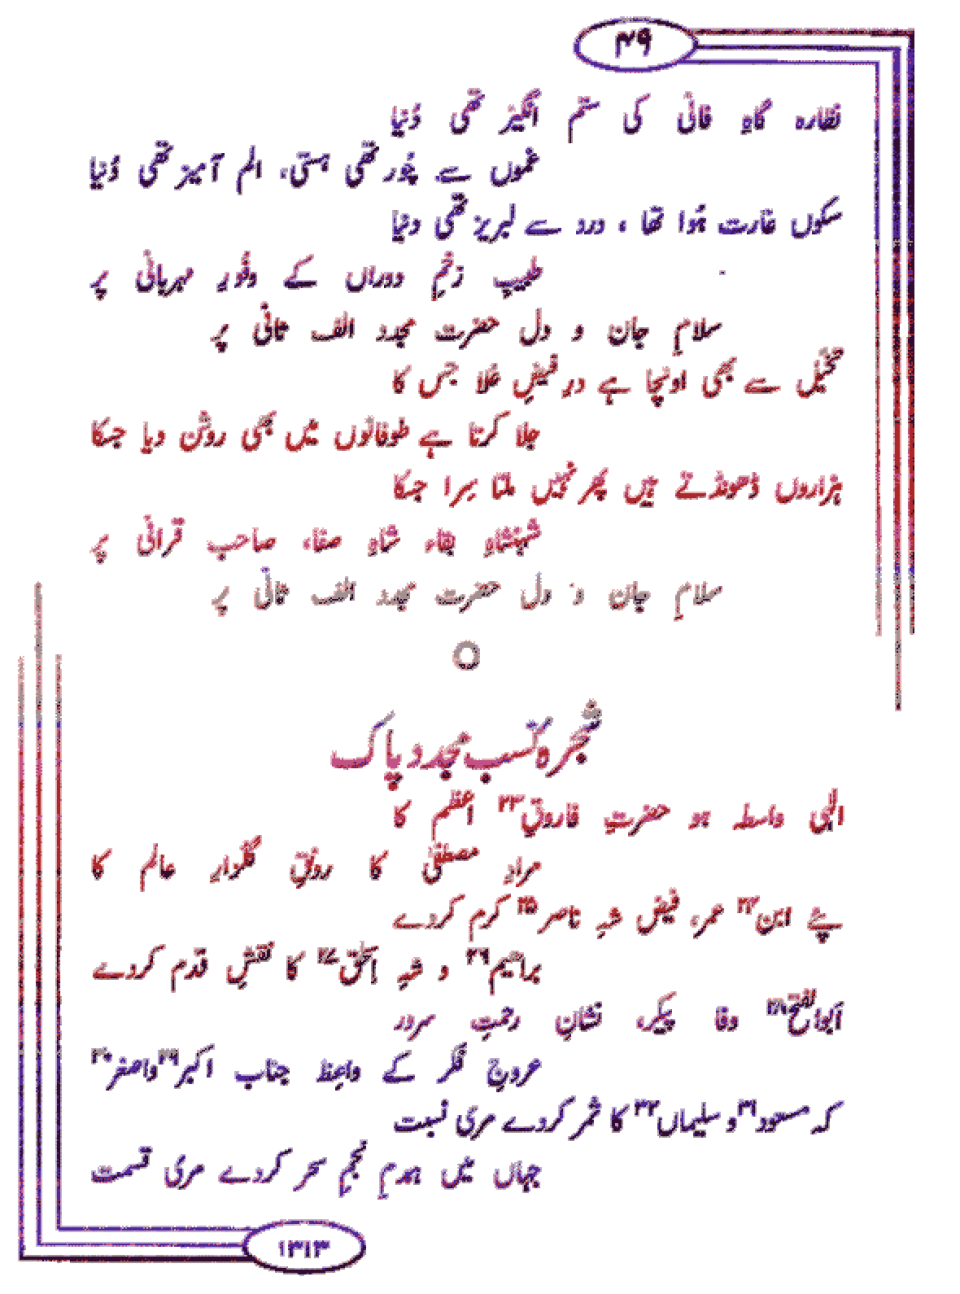 ۴۹
نظارہ گاہِ فانی کی ستم انگیز تھی دُنیا
غموں سے چُور تھی ہستی، الم آمیز تھی دُنیا
سکوں غارت ہُوا تھا ، درد سے لبریز تھی دنیا
طبیبِ زخمِ دوراں کے وفُورِ مہربانی پر
سلامِ جان و دل حضرت مجدد الف ثانی پر
تخیّل سے بھی اونچا ہے درِ فیضِ عُلا جس کا
جلا کرتا ہے طوفانوں میں بھی روشن دیا جسکا
ہزاروں ڈھونڈتے ہیں پھر نہیں ملتا سِرا جسکا
شہنشاہِ بقاء شاہِ صفا، صاحب قرانی پر
سلامِ جان و دل حضرت مجدد الف ثانی پر
شجرۂ نسب مجدد پاک
الٰہی واسطہ ہو حضرتِ فاروقِ۲۳ اعظم کا
مرادِ مصطفیٰ کا رونقِ گلزارِ عالم کا
پئے ابن۲۴ عمر، فیض شہِ ناصر۲۵ کرم کردے
براھیم۲۶ و شہِ اسحٰق۲۷ کا نقشِ قدم کردے
ابوالفتح۲۸ وفا پیکر، نشانِ رحمتِ سرور
عروجِ فکر کے واعِظ جناب اکبر۲۹ واصغر۳۰
کہ مسعود۳۱ و سلیماں۳۲ کا ثمر کردے مری نسبت
جہاں میں ہمدمِ نجمِ سحر کردے مری قسمت
۱۳۱۳